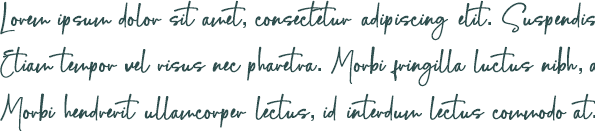 Lorem ipsum dolor sit amet, consectetur adipiscing elit. Suspendis
Etiam tempor vel risus nec pharetra. Morbi fringilla luctus nibh, a
Morbi hendrerit ullamcorper lectus, id interdum lectus commodo at.